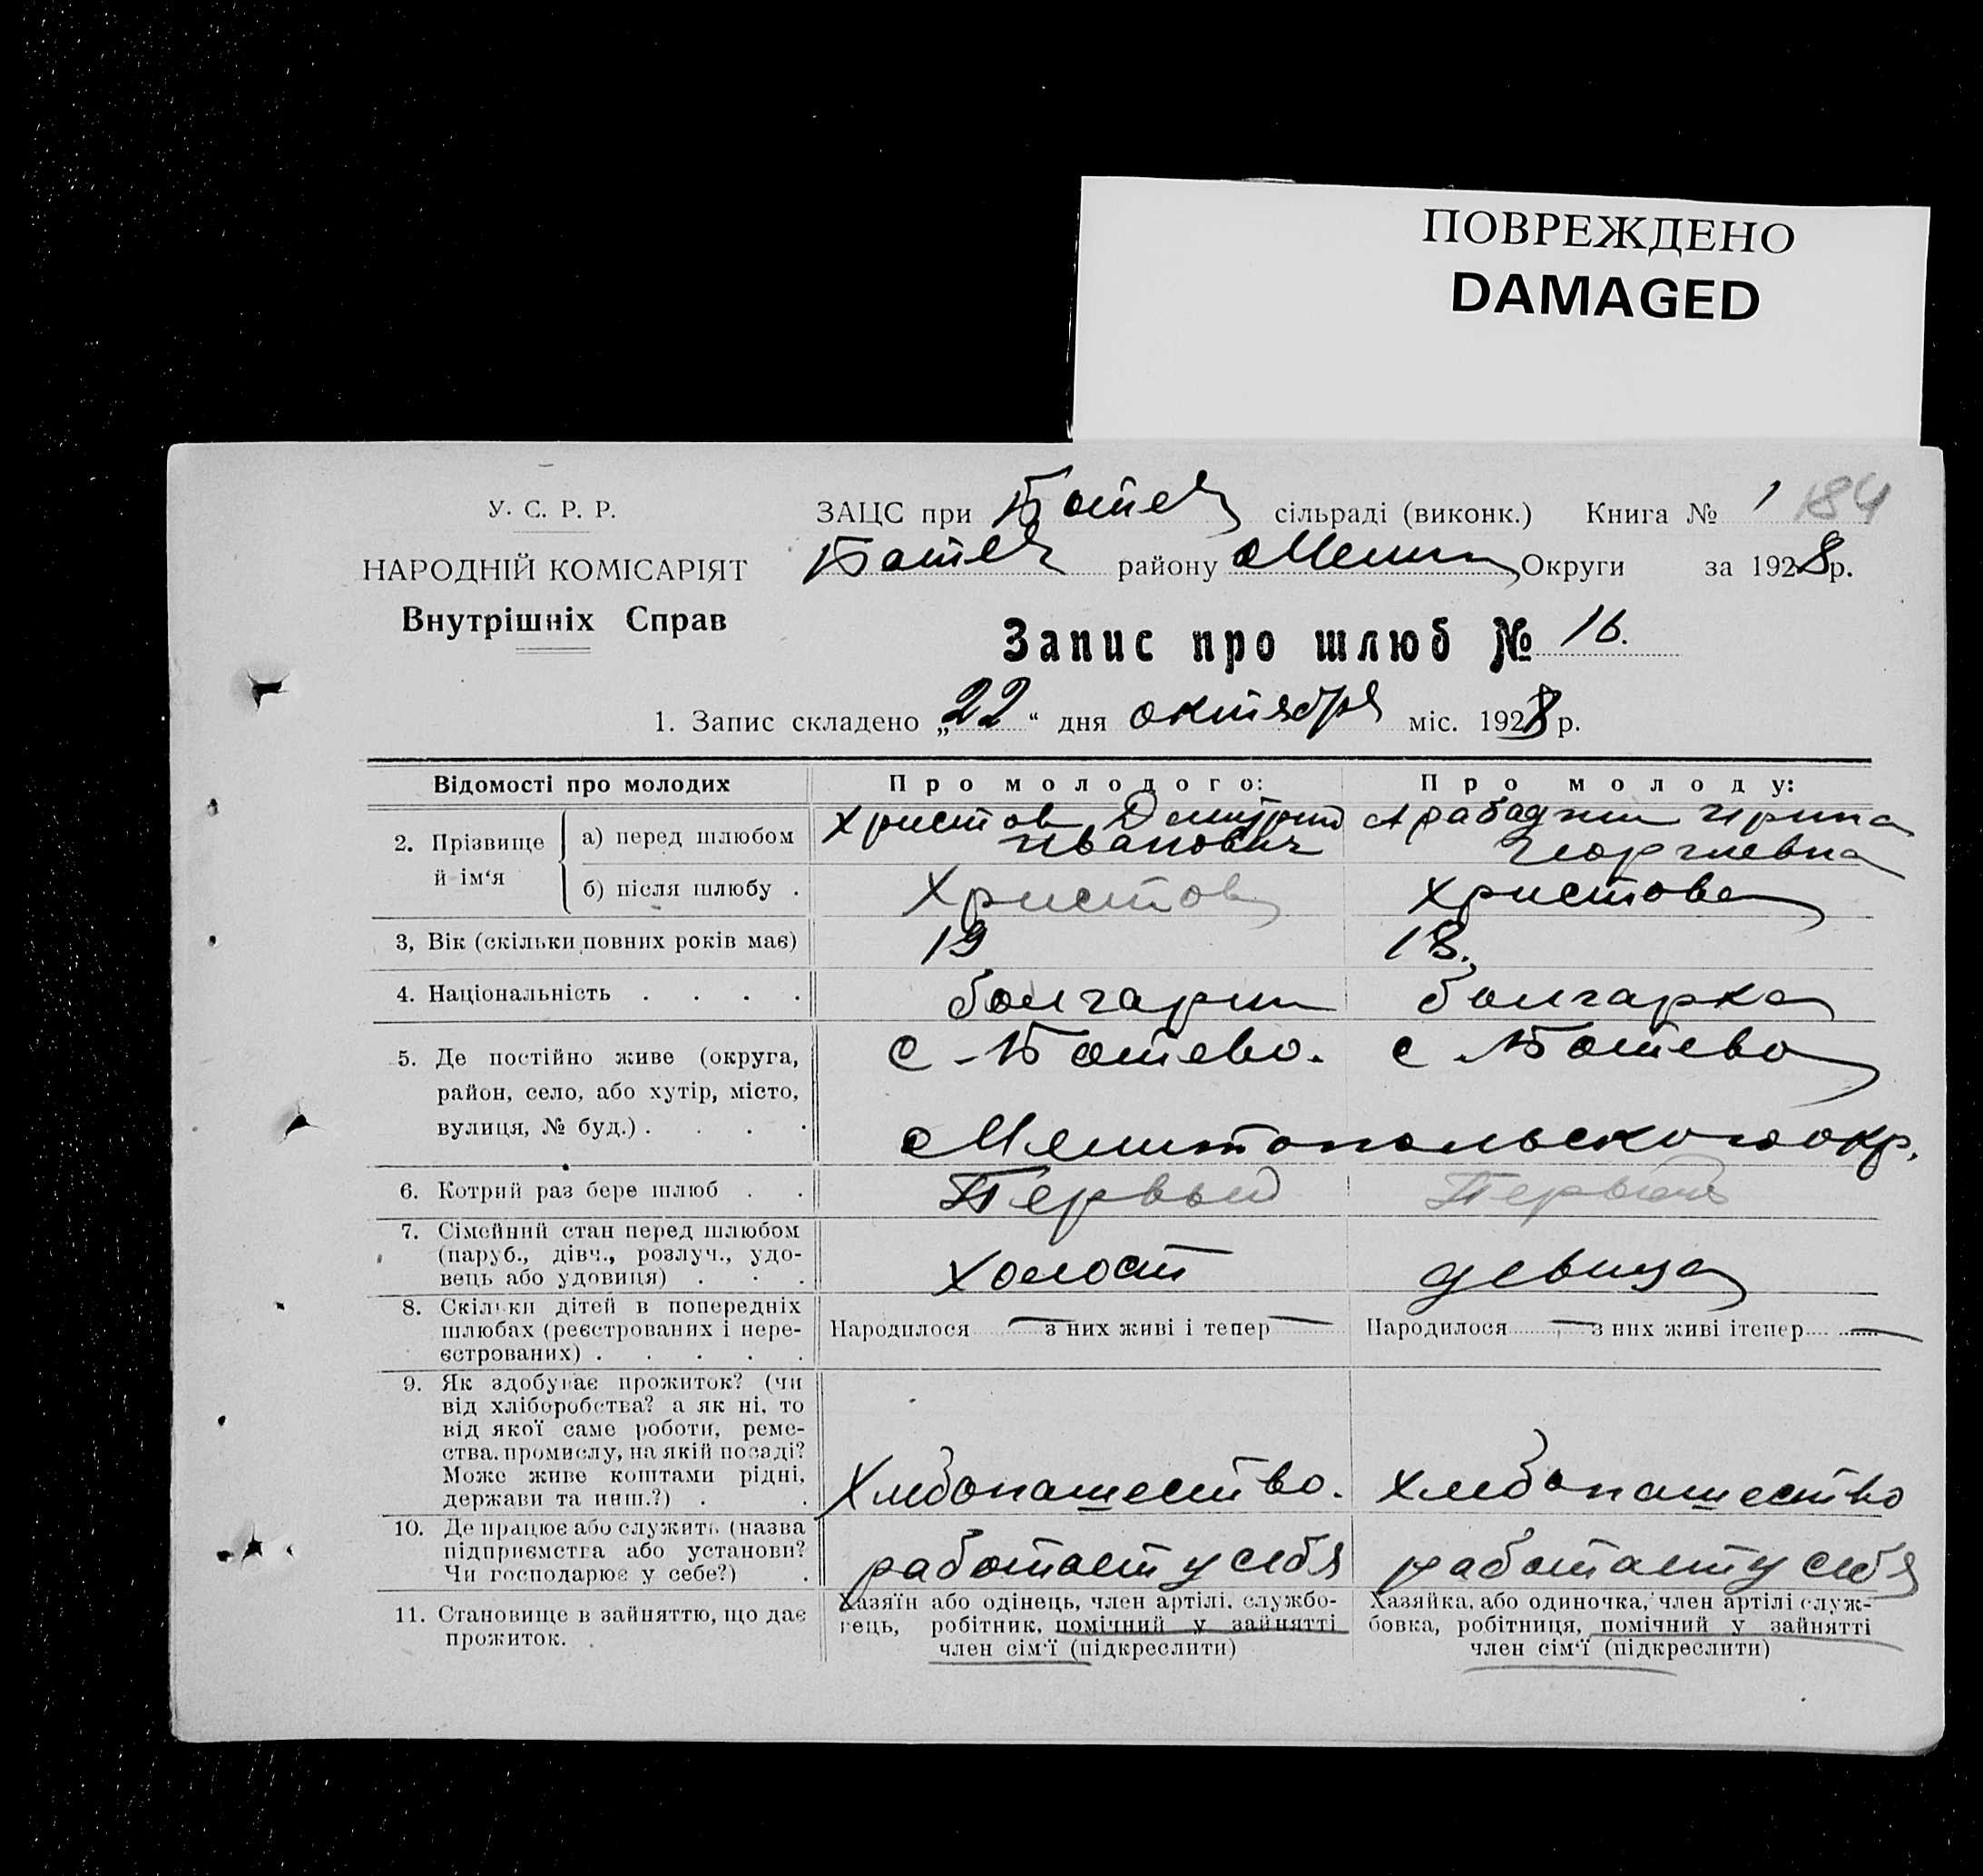 ПОВРЕЖДЕНО
DAMAGED
У. С. Р. Р.
НАРОДНІЙ КОМІСАРІЯТ
Внутрішніх Справ
ЗАЦС при Ботев сільраді (виконк.) Книга № 1 184
Ботев району Мелит Округи за 1928 р.
Запис про шлюб № 16.
1. Запис складено „22“ дня октября міс. 1928 р.
Відомості про молодих
Про молодого:
Про молоду:
2. Прізвище й ім‘я
а) перед шлюбом
Христов Дмитрий
Иванович
Арабаджи Ирина
Георгиевна
б) після шлюбу .
Христов
Христова
3, Вік (скільки повних років має)
19
18.
4. Національність . . . .
болгарин
болгарка
5. Де постійно живе (округа,
район, село, або хутір, місто,
вулиця, № буд.) . . . .
с - Ботево.
с Ботево
Мелитопольского окр.
6. Котрий раз бере шлюб . .
Первый
Первый
7. Сімейний стан перед шлюбом
(паруб., дівч., розлуч., удо-
вець або удовиця) . . .
холост
девица
8. Скільки дітей в попередніх
шлюбах (реєстрованих і нере-
єстрованих) . . . . .
Народилося — з них живі і тепер —
Народилося — з них живі ітепер —
9. Як здобуває прожиток? (чи
від хліборобства? а як ні, то
від якої саме роботи, реме-
ства, промислу, на якій посаді?
Може живе коштами рідні,
держави та инш.?) . .
Хлебопашество.
хлебопашество
10. Де працює або служить (назва
підприємства або установи?
Чи господарює у себе?) .
работает у себя
работает у себя
11. Становище в зайняттю, що дає
прожиток.
Хазяїн або одінець, член артілі, службо-
вець, робітник, помічний у зайнятті
член сім‘ї (підкреслити)
Хазяйка, або одиночка, член артілі служ-
бовка, робітниця, помічний у зайнятті
член сім‘ї (підкреслити)